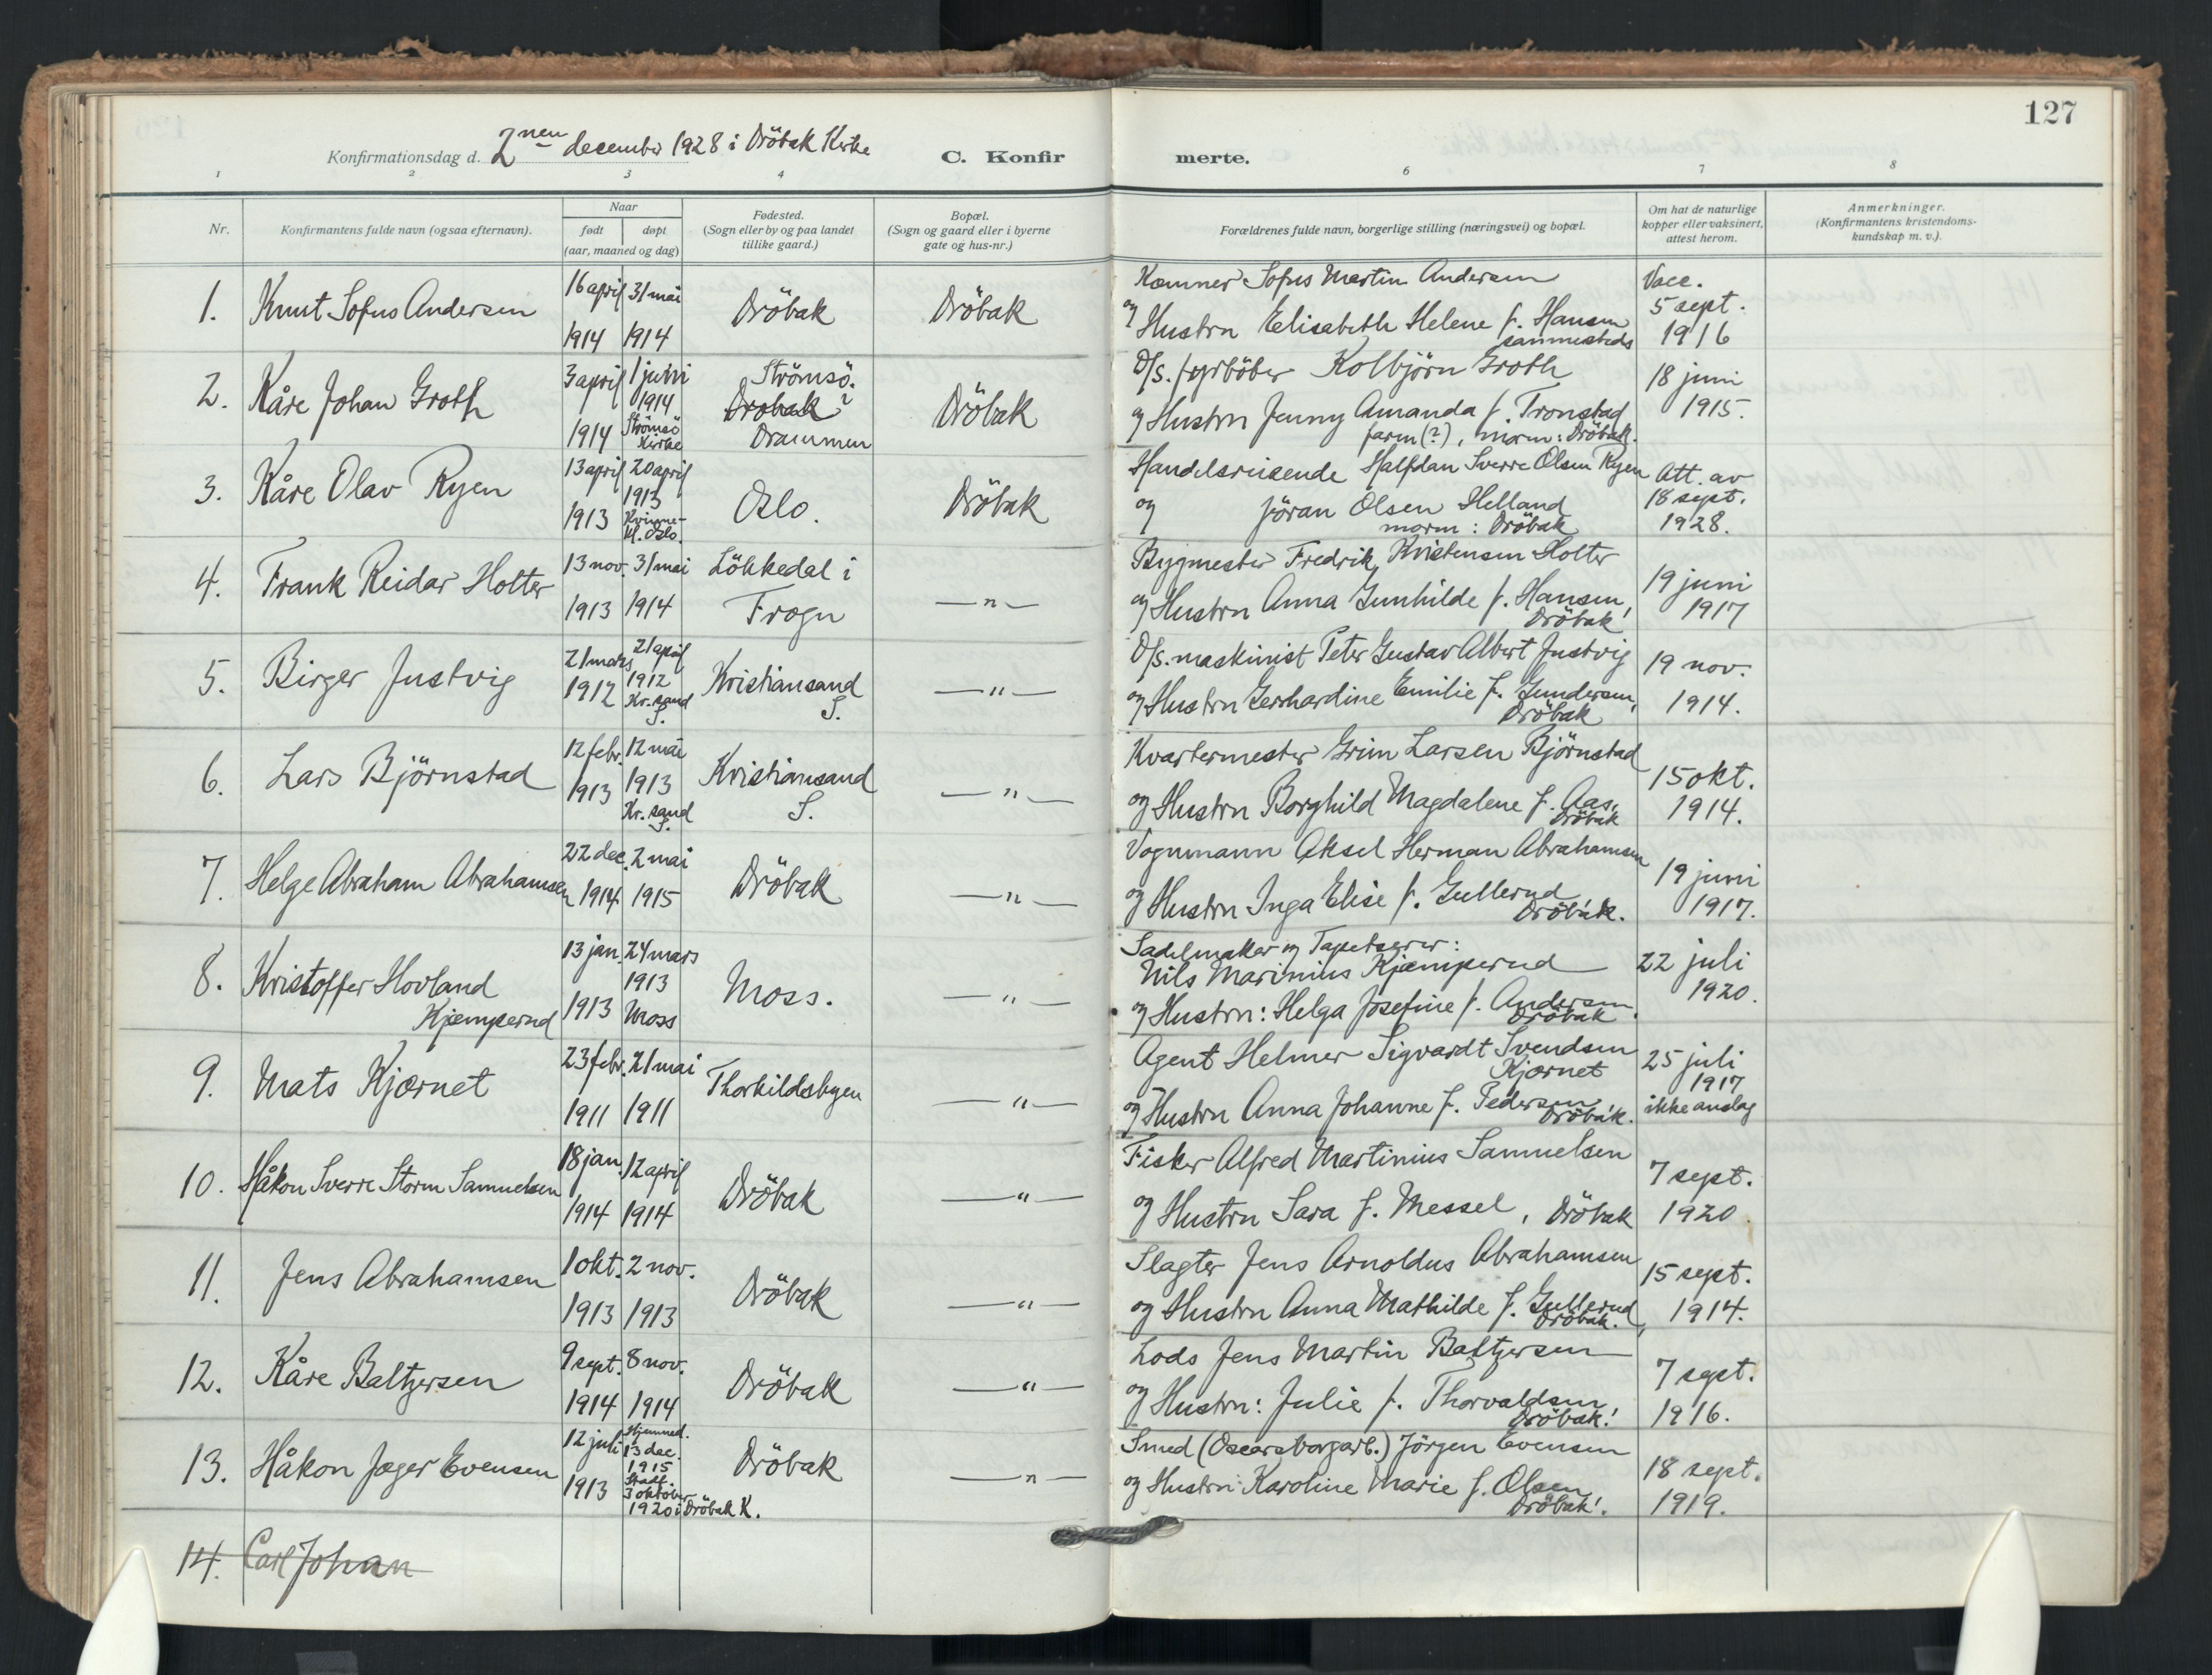 127
Konfirmationsdag d. 2nen december 1928 i Dröbak Kirke
C. Konfirmerte.
1 2 3 4 6 7 8
Nr.
Konfirmantens fulde navn (ogsaa efternavn).
Naar
født døpt
(aar, maaned og dag)
Fødested.
(Sogn eller by og paa landet
tillike gaard.)
Bopæl.
(Sogn og gaard eller i byerne
gate og hus-nr.)
Forældrenes fulde navn, borgerlige stilling (næringsvei) og bopæl.
Om hat de naturlige
kopper eller vaksinert,
attest herom.
Anmerkninger.
(Konfirmantens kristendoms-
kundskap m. v.).
1. Knut Sofus Andersen
16 april 1914
31 mai 1914
Dröbak
Dröbak
Kæmner Sofus Martin Andersen
og Hustru Elisabeth Helene f. Hansen
sammesteds
Vacc.
5 sept.
1916
2. Kåre Johan Groth
3 april 1914
1 juni
1914
Strömsö
Kirke
Strömsö.
Dröbak?
Drammen
Dröbak
O/s. fyrböter Kolbjörn Groth
og Hustru Jenny Amanda f. Tronstad
farm (?), morm: Dröbak.
18 juni
1915.
3. Kåre Olav Ryen
13 april 1913
20 april
1913
Kvinne-
kl. Oslo.
Oslo.
Dröbak
Handelsreisende Halfdan Sverre Olsen Ryen
og Jöran Olsen Helland
morm: Dröbak
Att. av
18 sept.
1928.
4. Frank Reidar Holter
13 nov. 1913
31 mai 1914
Lökkedal i
Frogn
— " —
Bygmester Fredrik Kristensen Holter
og Hustru Anna Gunhilde f. Hansen,
Dröbak
19 juni
1917
5. Birger Justvig
21 mars 1912
21 april
1912
Kr.sand
S.
Kristiansand
S.
— " —
O/s. maskinist Peter Gustav Albert Justvig
og Hustru Gerhardine Emilie f. Gundersen,
Dröbak
19 nov.
1914.
6. Lars Björnstad
12 febr. 1913
12 mai
1913
Kr.sand
S.
Kristiansand
S.
— " —
Kvartermester Grim Larsen Björnstad
og Hustru Borghild Magdalene f. Aas,
Dröbak
15 okt.
1914.
7. Helge Abraham Abrahamsen
22 dec. 1914
2 mai 1915
Dröbak
— " —
Vognmann Aksel Herman Abrahamsen
og Hustru Inga Elise f. Gullerud
Dröbak.
19 juni
1917.
8. Kristoffer Hovland
Kjemperud
13 jan. 1913
24 mars
1913
Moss
Moss.
— " —
Sadelmaker og Tapetserer:
Nils Marinius Kjæmperud
og Hustru: Helga Josefine f. Andersen
Dröbak.
22 juli
1920.
9. Mats Kjærnet
23 febr. 1911
21 mai 1911
Thorkildsbyen
— " —
Agent Helmer Sigvardt Svendsen
Kjærnet
og Hustru Anna Johanne f. Pedersen,
Dröbak.
25 juli
1917
ikke anslag
10. Håkon Sverre Storm Samuelsen
18 jan. 1914
12 april 1914
Dröbak
— " —
Fisker Alfred Martinius Samuelsen
og Hustru Sara f. Messel, Dröbak
7 sept.
1920.
11. Jens Abrahamsen
1 okt. 1913
2 nov. 1913
Dröbak
— " —
Slagter Jens Arnoldus Abrahamsen
og Hustru Anna Mathilde f. Gullerud,
Dröbak.
15 sept.
1914.
12. Kåre Baltzersen
9 sept. 1914
8 nov. 1914
Dröbak
— " —
Lods Jens Martin Baltzersen
og Hustru: Julie f. Thorvaldsen
Dröbak!
7 sept.
1916.
13. Håkon Jæger Evensen
12 juli 1913
Hjemmed.
13 dec.
1915
Stadf.
3 oktober
1920 i Dröbak K.
Dröbak
— " —
Smed (Oscarsborgarb.) Jörgen Evensen
og Hustru: Karoline Marie f. Olsen
Dröbak!
18 sept.
1919.
14. Carl Johan